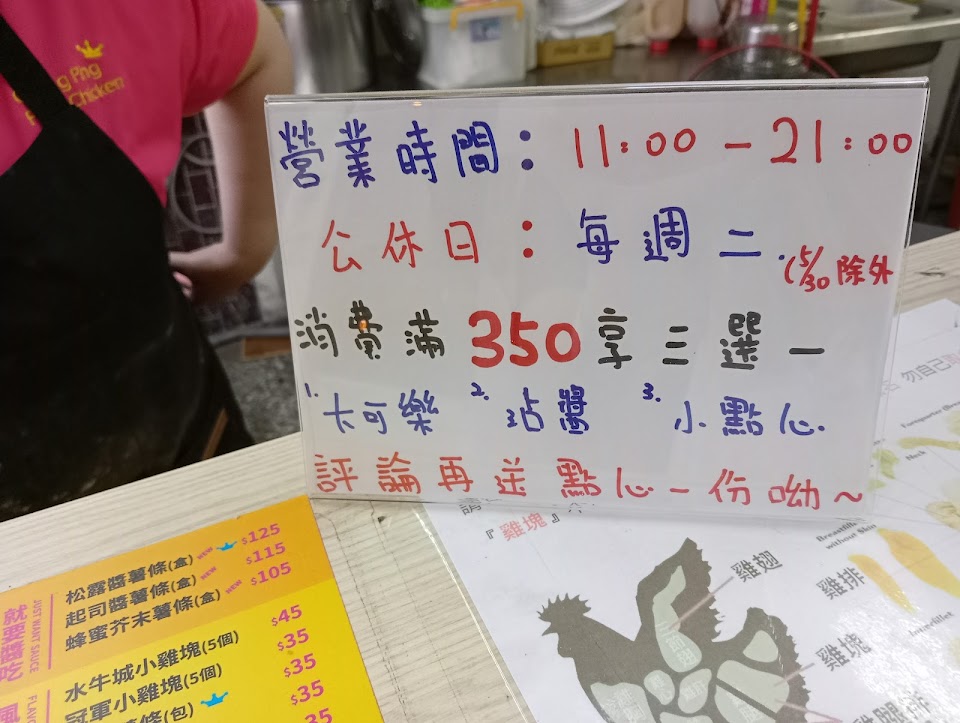 Png
Chicken
營業時間：11:00 - 21:00
公休日：每週二 (5/30 除外
消費滿 350 享三選一
1. 卡可樂 2. 沾醬 3. 小點心
評論再送點心一份呦~
就要醬吃
JUST WANT SAUCE
松露醬薯條(盒) NEW $125
起司醬薯條(盒) NEW $115
蜂蜜芥末薯條(盒) NEW $105
水牛城小雞塊(5個) $45
冠軍小雞塊(5個) $35
薯條(包) $35
$35
35
風
FLAV
勿自己
請
『雞塊』
Neck
Breastfillet
without Skin
雞翅
雞排
雞塊
Innerfillet